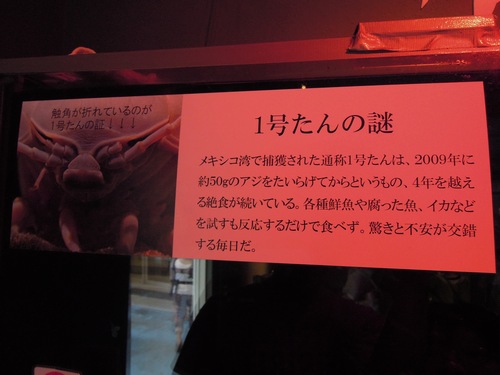 触角が折れているのが
1号たんの証↓↓↓
1号たんの謎
メキシコ湾で捕獲された通称1号たんは、2009年に
約50gのアジをたいらげてからというもの、4年を越え
る絶食が続いている。各種鮮魚や腐った魚、イカなど
を試すも反応するだけで食べず。驚きと不安が交錯
する毎日だ。